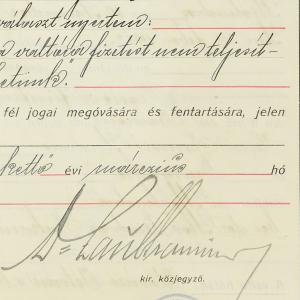 választ nyertem:
a váltóra fizetést nem teljesít-
hetünk".
fél jogai megóvására és fentartására, jelen
kettő évi márczius hó
Dr
kir. közjegyző.